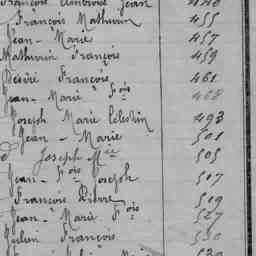 François Ambroise Jean 446
François Mathurin 455
Jean - Marie 457
Mathurin François 459
Désiré François 461
Jean - Marie Fçois 468
Joseph Marie Célestin 493
Jean - Marie 501
Joseph - Mie 505
Jean - Fçois Joseph 517
François Pierre 519
Jean - Marie Fçois 527
Julien François 530
Marie 530